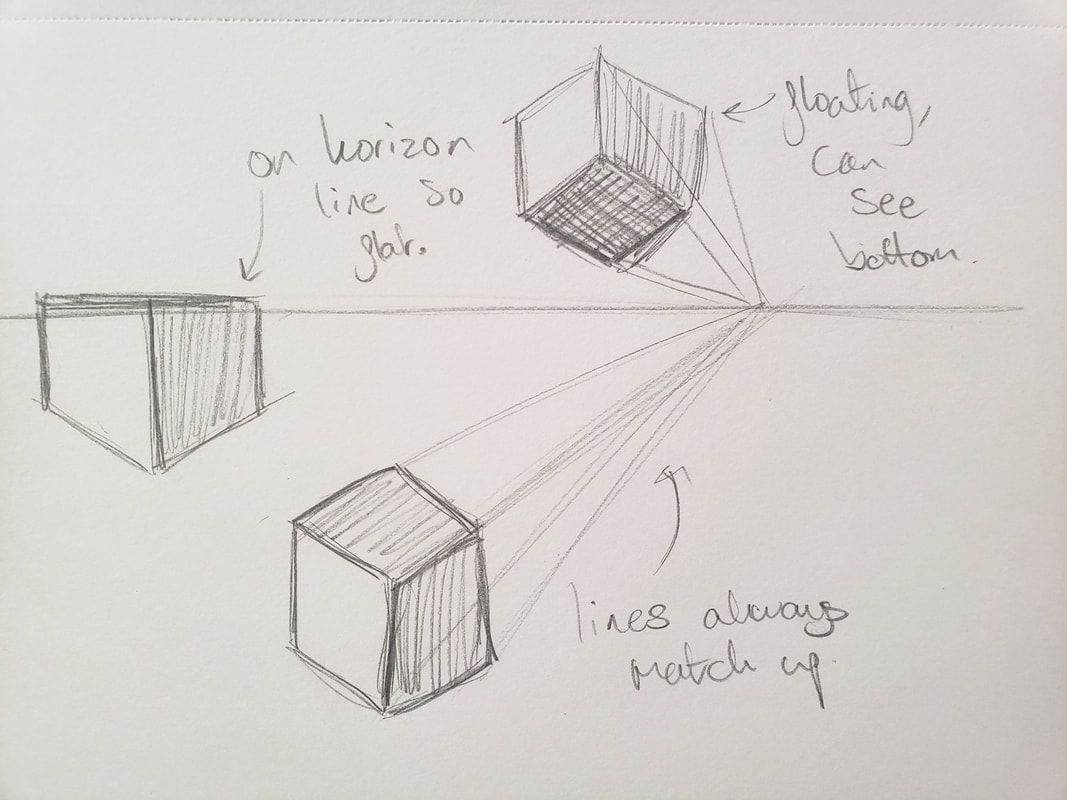 on horizon
line so
flat.
floating,
can
see
bottom.
lines always
match up.